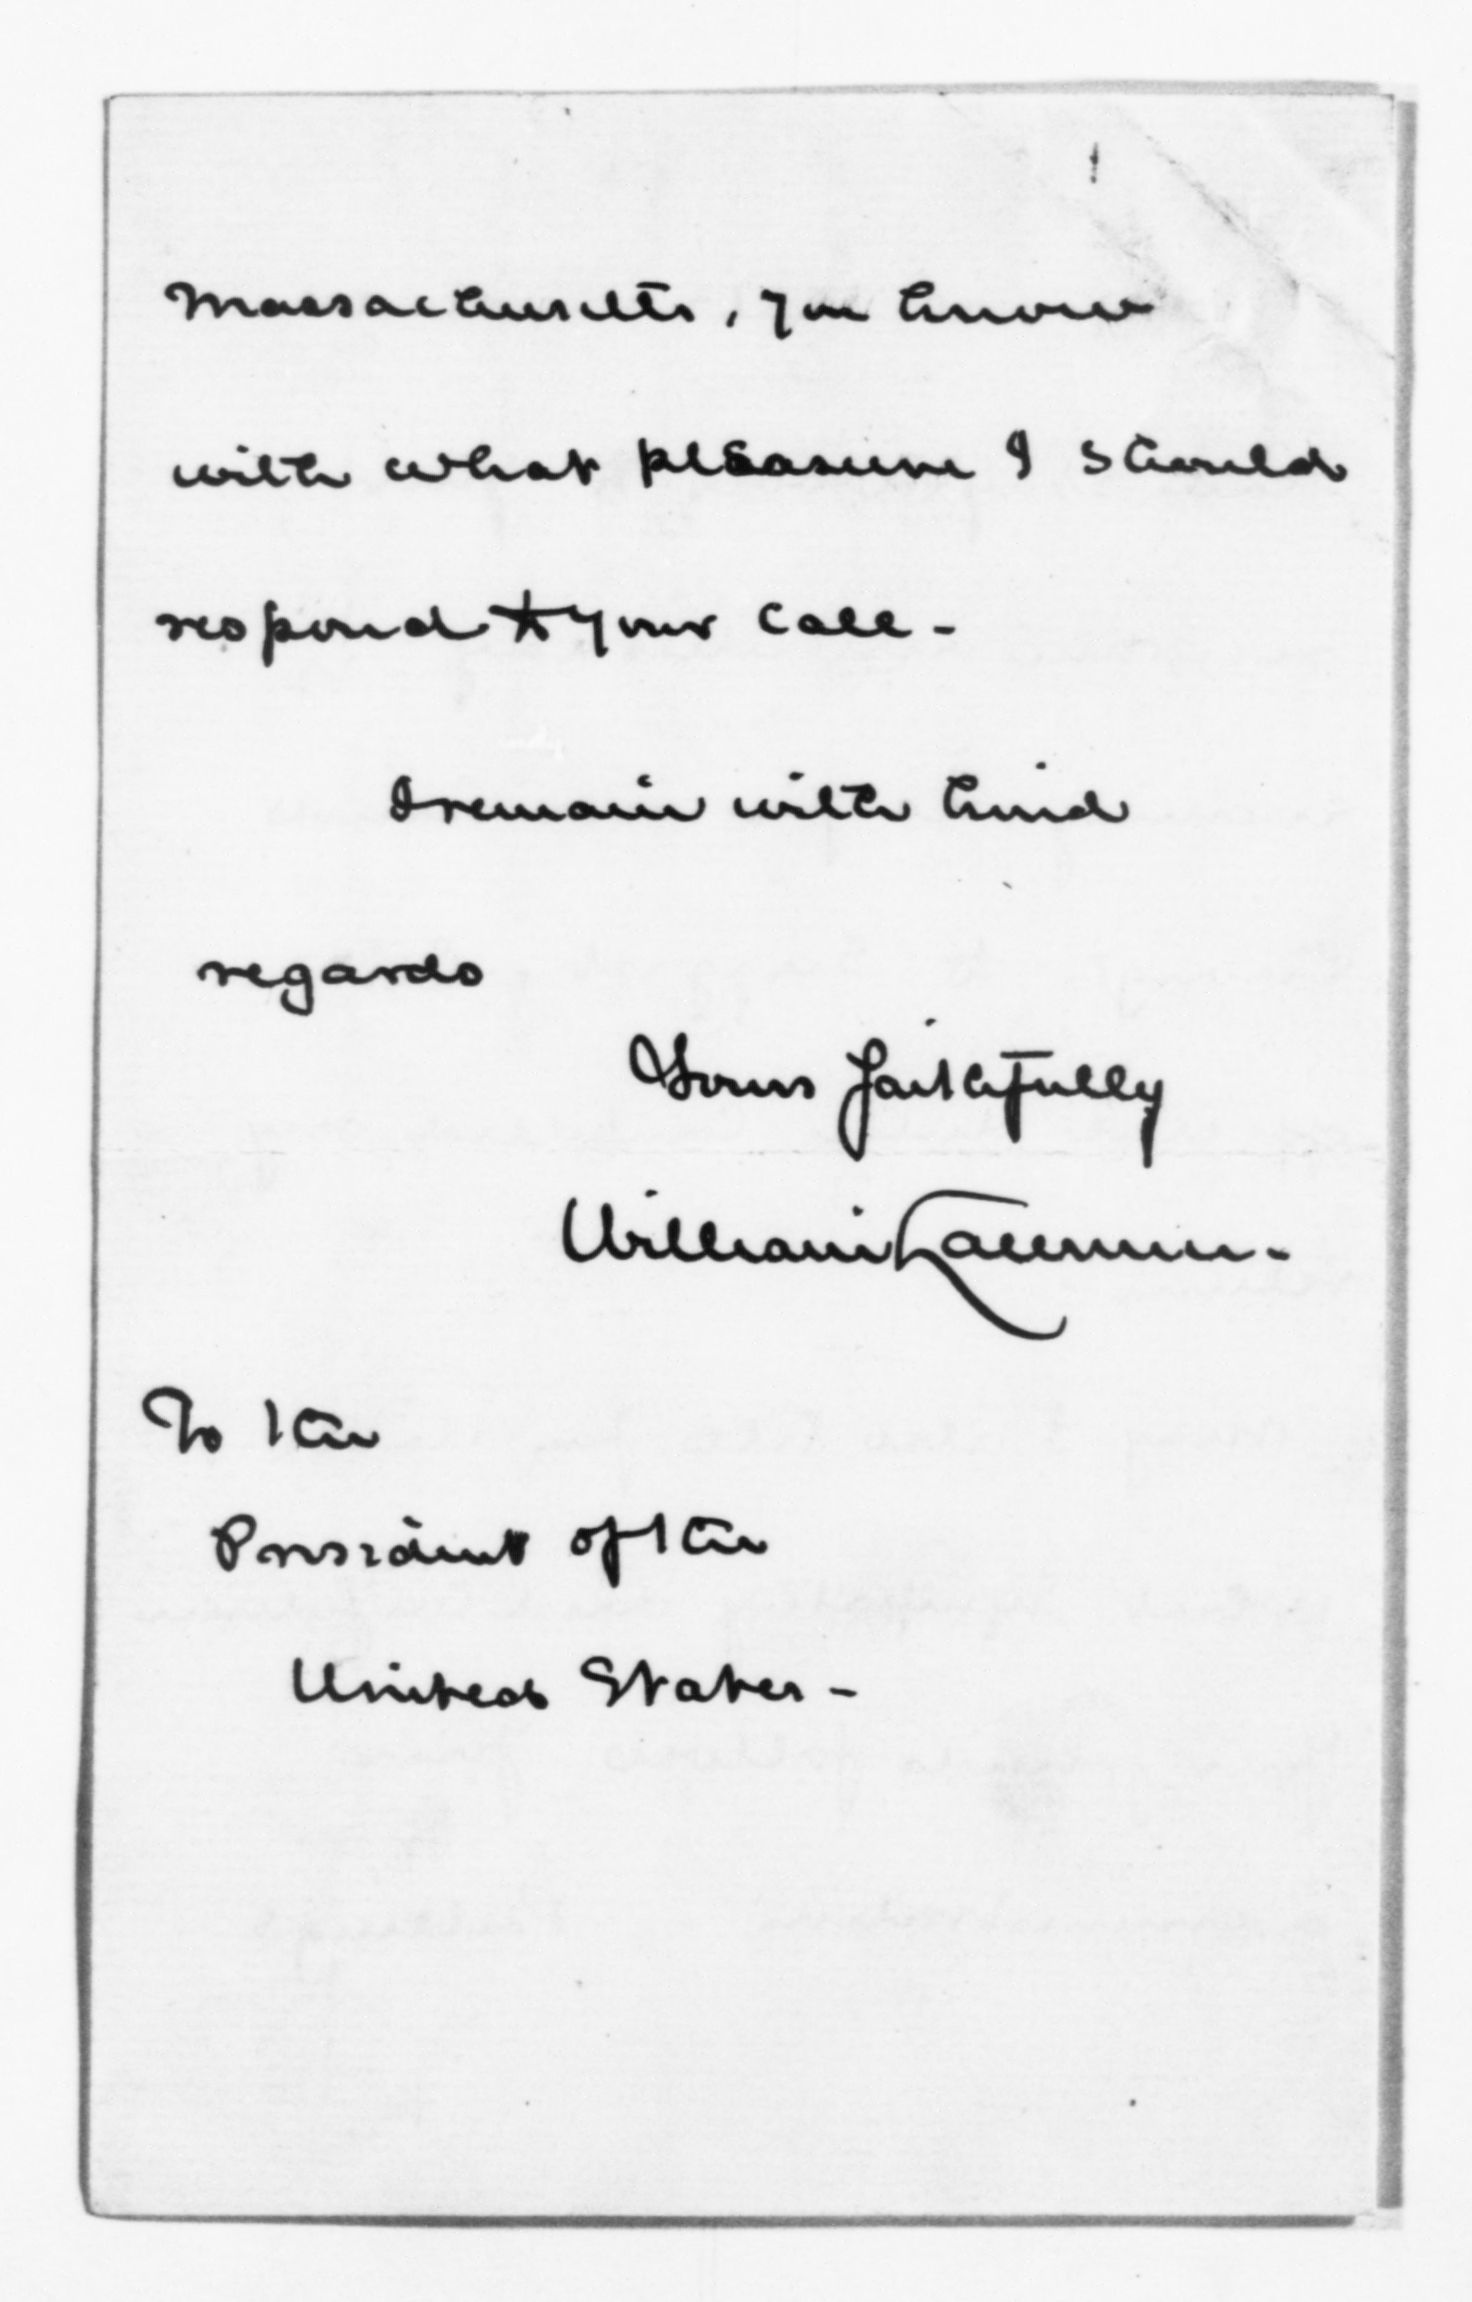 Massachusetts, you know
with what pleasure I should
respond to your call -
I remain with kind
regards
Yours faithfully
William
To the
President of the
United States -